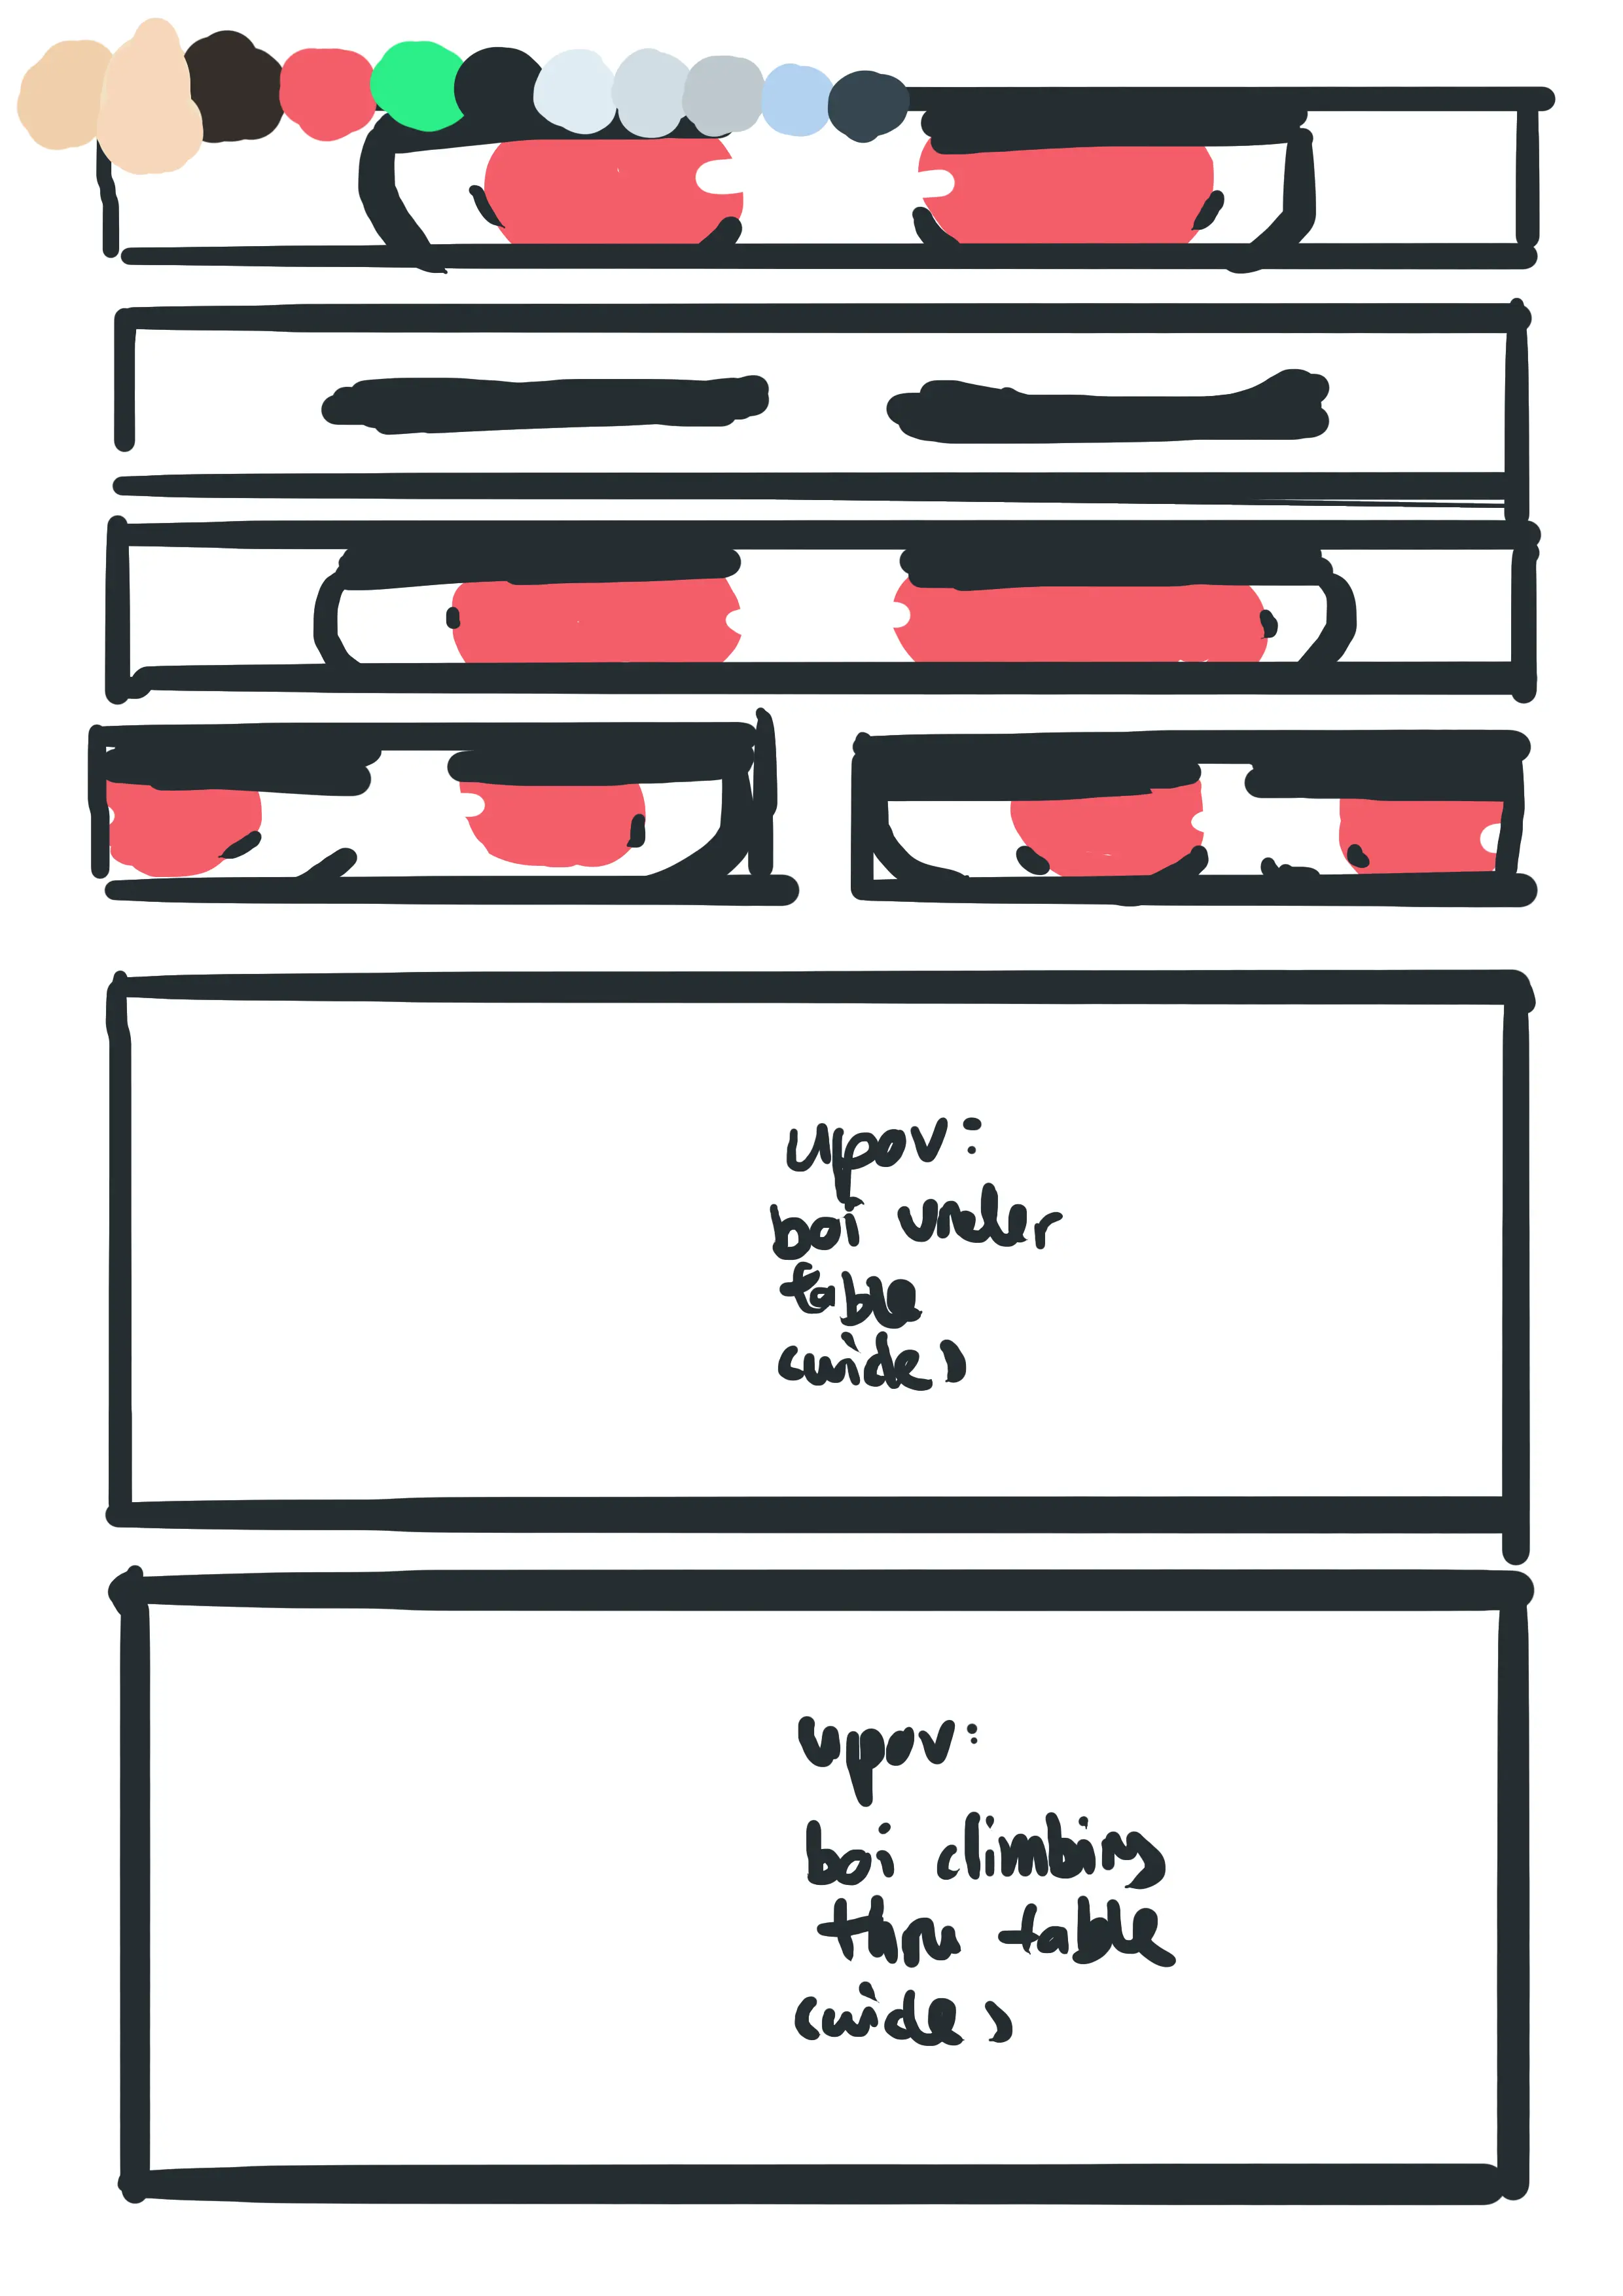 uppov:
boi under
table
cuide)
uppov:
boi climbing
thru table
cuide)